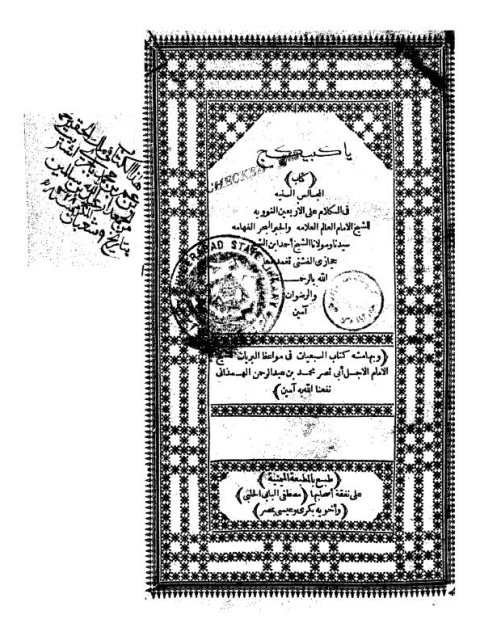 يا كبيكج
CHECKED
(كتاب)
المجالس السنيه
فى الكلام على الاربعين النوويه
للشيخ الامام العالم العلامه والحبر البحر الفهامه
سيدنا ومولانا الشيخ أحمد ابن الشيخ
حجازى الفشنى تغمدهما
الله بالرحمة
والرضوان
آمين
STATE LIBRARY
(وبهامشه كتاب السبعيات فى مواعظ البريات للشيخ
الامام الاجل أبى نصر محمد بن عبدالرحمن الهمذانى
نفعنا الله به آمين)
(طبع بالمطبعة الميمنية)
على نفقة أصحابها (مصطفى البابى الحلبى)
(وأخويه بكرى وعيسى بمصر)